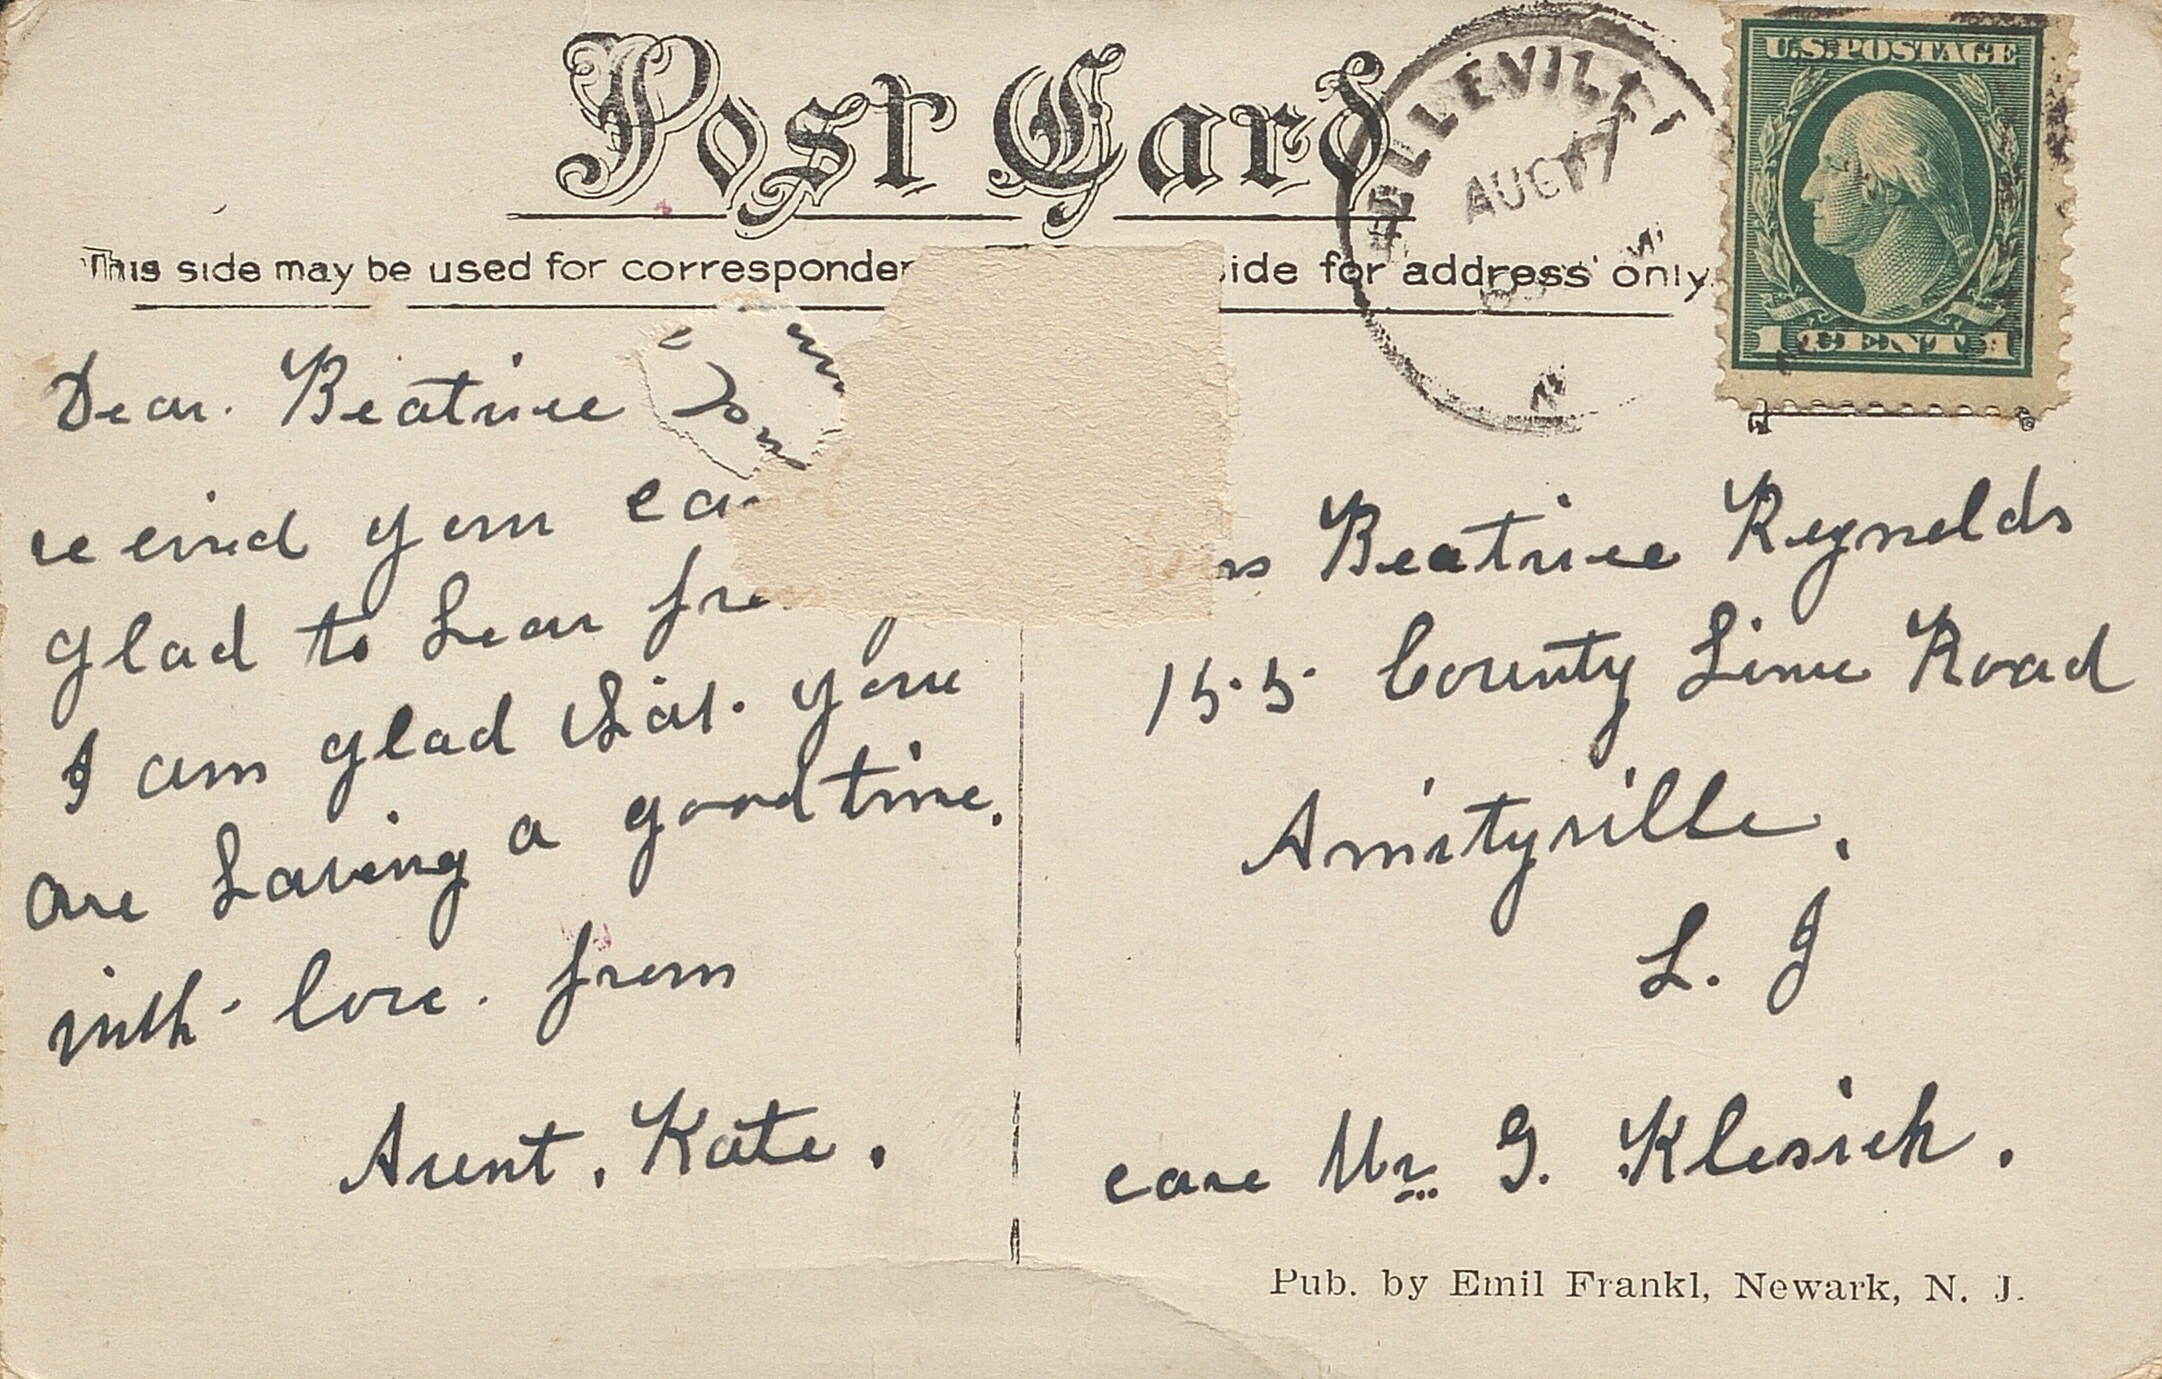 Post Card
This side may be used for corresponden ide for address only.
U.S. POSTAGE
1 CENT 1
ELLEVILLE
AUG 17
Dear. Beatrice
recived your ca
glad to hear fro
I am glad that. you
are having a good time.
with. love. from
Aunt. Kate.
Beatrice Reynolds
155. County Line Road
Amityville.
L. I
care Mr G. Klesich.
Pub. by Emil Frankl, Newark, N. J.